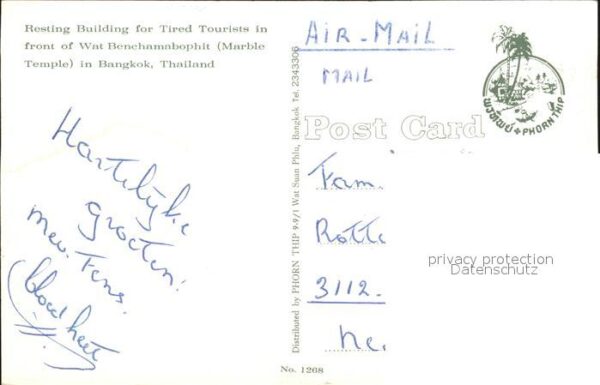 Resting Building for Tired Tourists in
front of Wat Benchamabophit (Marble
Temple) in Bangkok, Thailand
Hartelijke
groeten
mev. Fens.
Distributed by PHORN THIP 9-9/1 Wat Suan Phlu, Bangkok Tel. 2343306
No. 1268
AIR-MAIL
MAIL
Post Card
พรทิพย์ PHORN THIP
Fam.
Rotte
3112.
Ne.
privacy protection
Datenschutz